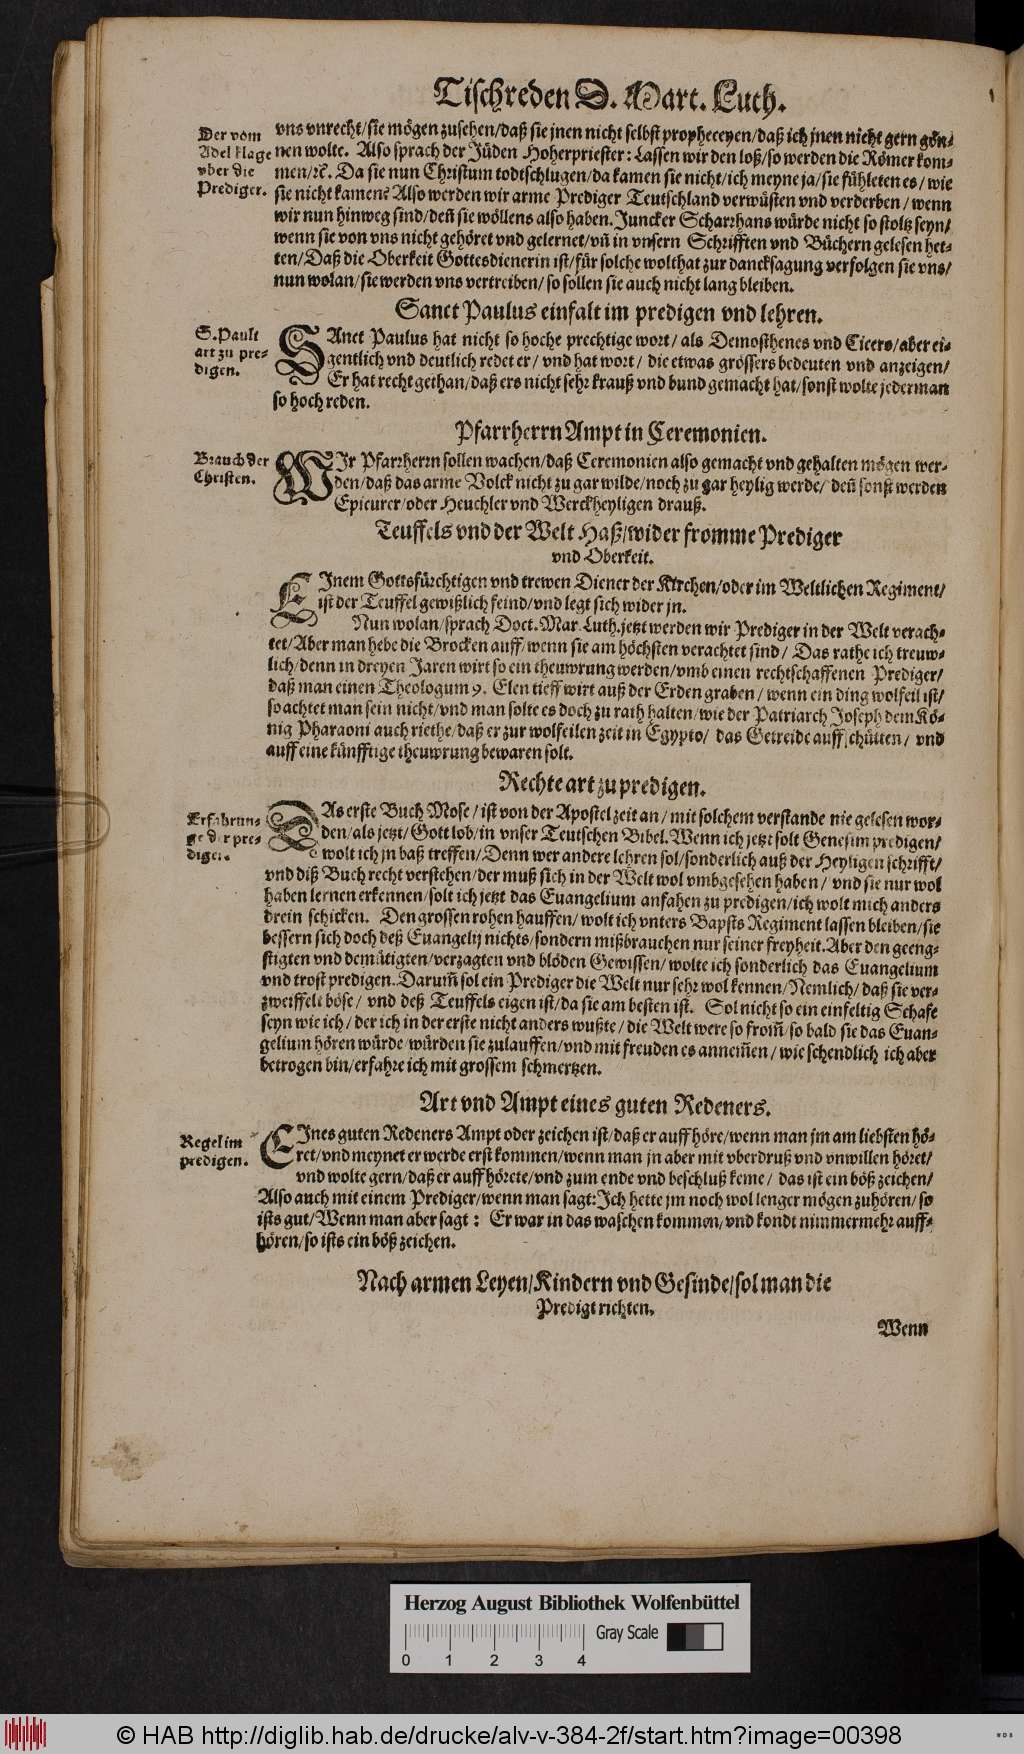 Tischreden D. Mart. Luth.
Der vom
Adel klage
vber die
Prediger.
vns vnrecht/sie mögen zusehen/daß sie jnen nicht selbst propheceyen/daß ich jnen nicht gern gön-
nen wolte. Also sprach der Jüden Hoherpriester: Lassen wir den loß/so werden die Römer kom-
men/ꝛc. Da sie nun Christum todtschlugen/da kamen sie nicht/ich meyne ja/sie fühleten es/wie
sie nicht kamen? Also werden wir arme Prediger Teutschland verwüsten vnd verderben/wenn
wir nun hinweg sind/deñ sie wöllens also haben. Juncker Scharrhans würde nicht so stoltz seyn/
wenn sie von vns nicht gehöret vnd gelernet/vñ in vnsern Schrifften vnd Büchern gelesen het-
ten/Daß die Oberkeit Gottesdienerin ist/für solche wolthat zur dancksagung verfolgen sie vns/
nun wolan/sie werden vns vertreiben/so sollen sie auch nicht lang bleiben.
Sanct Paulus einfalt im predigen vnd lehren.
S. Pauli
art zu pre-
digen.
SAnct Paulus hat nicht so hoche prechtige wort/als Demosthenes vnd Cicero/aber ei-
gentlich vnd deutlich redet er/vnd hat wort/die etwas grössers bedeuten vnd anzeigen/
Er hat recht gethan/daß ers nicht sehr krauß vnd bund gemacht hat/sonst wolte jederman
so hoch reden.
Pfarrherrn Ampt in Ceremonien.
Brauch der
Christen.
WIr Pfarrherrn sollen wachen/daß Ceremonien also gemacht vnd gehalten mögen wer-
den/daß das arme Volck nicht zu gar wilde/noch zu gar heylig werde/deñ sonst werden
Epicurer/oder Heuchler vnd Werckheyligen drauß.
Teuffels vnd der Welt Haß/wider fromme Prediger
vnd Oberkeit.
EInem Gottsfürchtigen vnd trewen Diener der Kirchen/oder im Weltlichen Regiment/
ist der Teuffel gewißlich feind/vnd legt sich wider jn.
Nun wolan/sprach Doct. Mar. Luth. jetzt werden wir Prediger in der Welt verach-
tet/Aber man hebe die Brocken auff/wenn sie am höchsten verachtet sind/Das rathe ich treuw-
lich/denn in dreyen Jaren wirt so ein theuwrung werden/vmb einen rechtschaffenen Prediger/
daß man einen Theologum 9. Elen tieff wirt auß der Erden graben/wenn ein ding wolfeil ist/
so achtet man sein nicht/vnd man solte es doch zu rath halten/wie der Patriarch Joseph dem Kö-
nig Pharaoni auch riethe/daß er zur wolfeilen zeit in Egypto/das Getreide auffschütten/vnd
auff eine künfftige theuwrung bewaren solt.
Rechte art zu predigen.
Erfahrun-
ge der pre-
diger.
DAs erste Buch Mose/ist von der Apostel zeit an/mit solchem verstande nie gelesen wor-
den/als jetzt/Gott lob/in vnser Teutschen Bibel. Wenn ich jetzt solt Genesim predigen/
wolt ich jn baß treffen/Denn wer andere lehren sol/sonderlich auß der Heyligen schrifft/
vnd diß Buch recht verstehen/der muß sich in der Welt wol vmbgesehen haben/vnd sie nur wol
haben lernen erkennen/solt ich jetzt das Euangelium anfahen zu predigen/ich wolt mich anders
drein schicken. Den grossen rohen hauffen/wolt ich vnters Bapsts Regiment lassen bleiben/sie
bessern sich doch deß Euangelij nichts/sondern mißbrauchen nur seiner freyheit. Aber den geeng-
stigten vnd demütigten/verzagten vnd blöden Gewissen/wolte ich sonderlich das Euangelium
vnd trost predigen. Darum̃ sol ein Prediger die Welt nur sehr wol kennen/Nemlich/daß sie ver-
zweiffelt böse/vnd deß Teuffels eigen ist/da sie am besten ist. Sol nicht so ein einfeltig Schafe
seyn wie ich/der ich in der erste nicht anders wußte/die Welt were so from̃/so bald sie das Euan-
gelium hören würde/würden sie zulauffen/vnd mit freuden es annem̃en/wie schendlich ich aber
betrogen bin/erfahre ich mit grossem schmertzen.
Art vnd Ampt eines guten Redeners.
Regel im
predigen.
EInes guten Redeners Ampt oder zeichen ist/daß er auff höre/wenn man jm am liebsten hö-
ret/vnd meynet er werde erst kommen/wenn man jn aber mit vberdruß vnd vnwillen höret/
vnd wolte gern/daß er auff hörete/vnd zum ende vnd beschluß keme/das ist ein böß zeichen/
Also auch mit einem Prediger/wenn man sagt: Ich hette jm noch wol lenger mögen zuhören/so
ists gut/Wenn man aber sagt: Er war in das waschen kommen/vnd kondt nimmermehr auff-
hören/so ists ein böß zeichen.
Nach armen Leyen/Kindern vnd Gesinde/sol man die
Predigt richten.
Wenn
Herzog August Bibliothek Wolfenbüttel
Gray Scale
0 1 2 3 4
© HAB http://diglib.hab.de/drucke/alv-v-384-2f/start.htm?image=00398